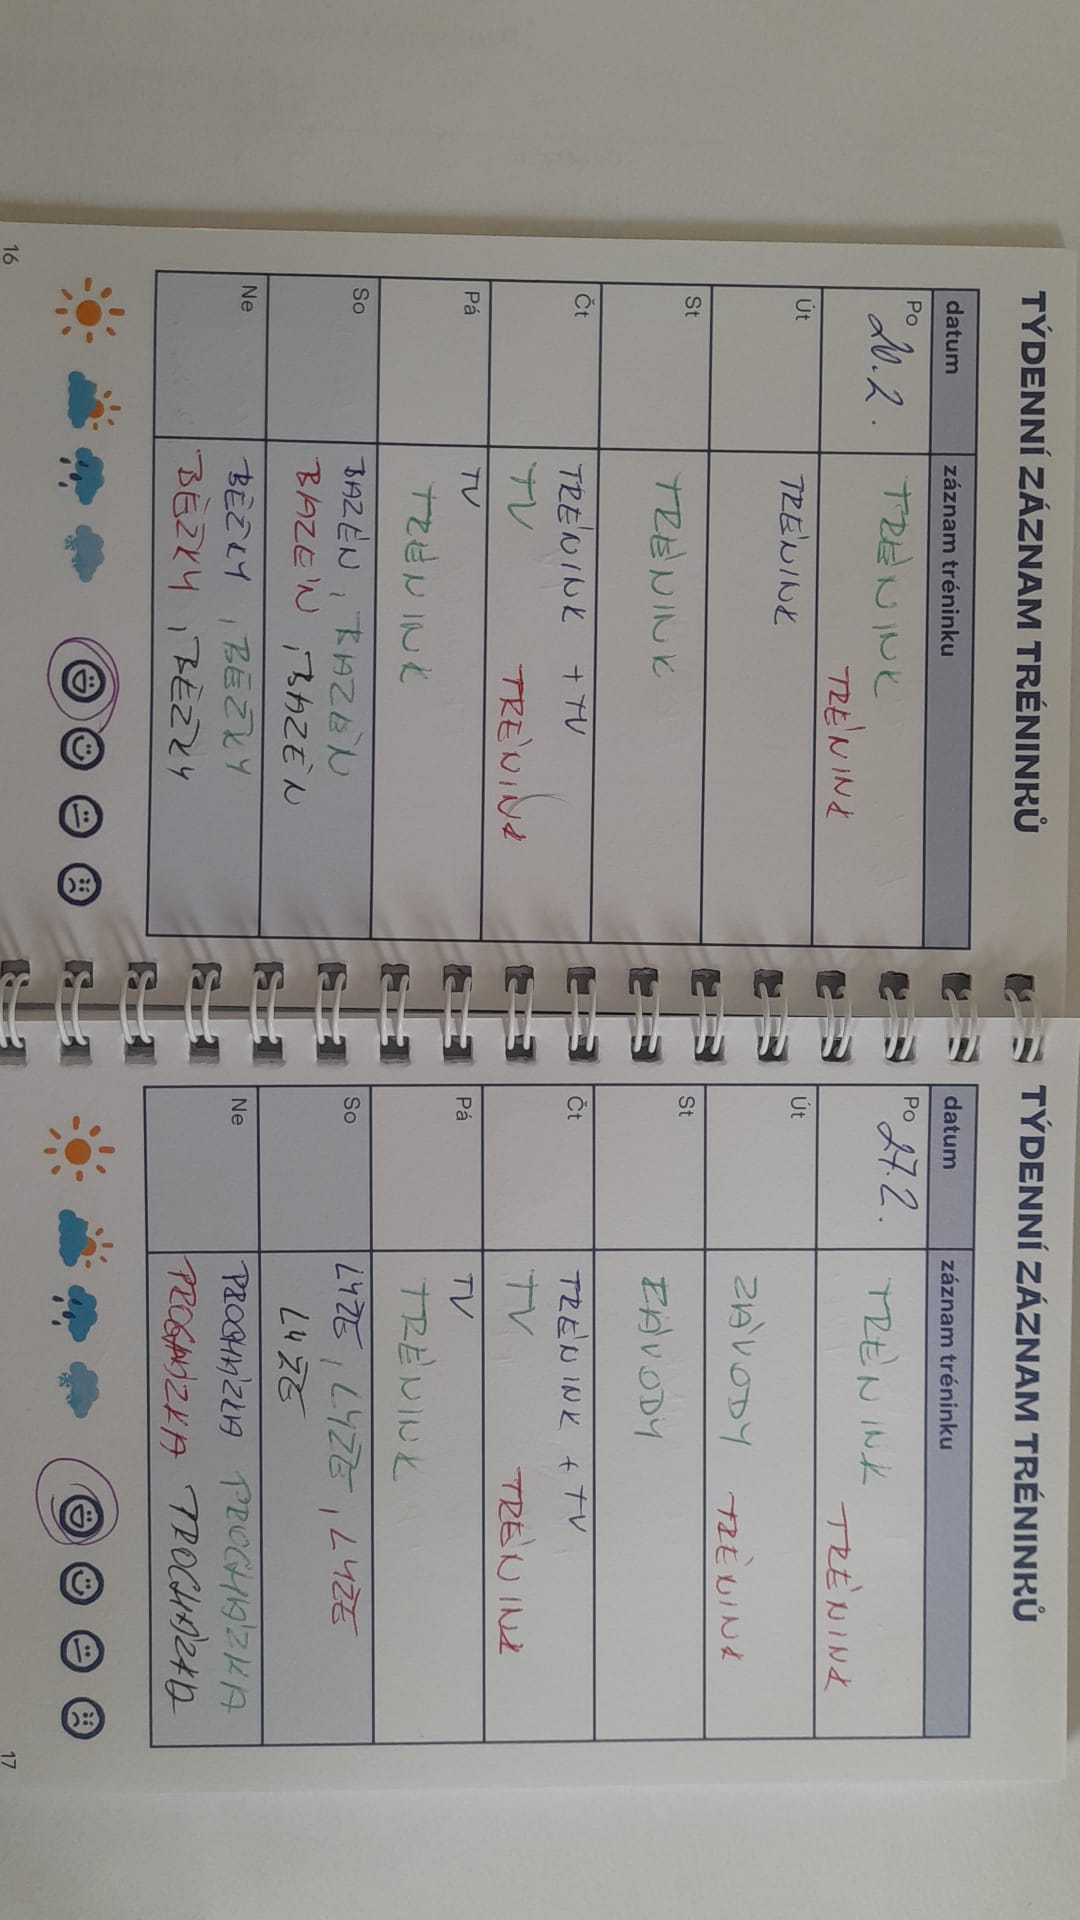 TÝDENNÍ ZÁZNAM TRÉNINKŮ
datum záznam tréninku
Po 20.2. TRÉNINK
TRÉNINK
Út TRÉNINK
St TRÉNINK
Čt TRÉNINK + TV
TV TRÉNINK
Pá TV
TRÉNINK
So BAZÉN, BAZÉN
BAZÉN, BAZÉN
Ne BĚZKY, BĚZKY
BĚZKY, BĚZKY
16
TÝDENNÍ ZÁZNAM TRÉNINKŮ
datum záznam tréninku
Po 27.2. TRÉNINK
TRÉNINK
Út
ZÁVODY TRÉNINK
St ZÁVODY
Čt TRÉNINK + TV
TV TRÉNINK
Pá TV
TRÉNINK
So LYŽE, LYŽE, LYŽE
LYŽE
Ne PROCHÁZKA PROCHÁZKA
PROCHÁZKA PROCHÁZKA
17